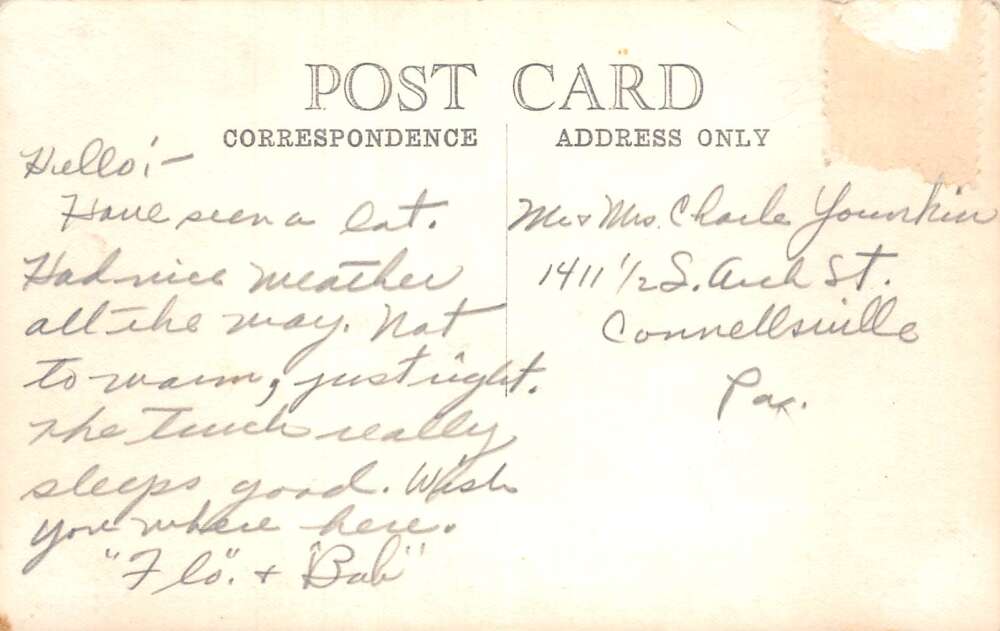 POST CARD
CORRESPONDENCE
ADDRESS ONLY
Hello!-
Have seen a lot.
Had nice weather
all the way. Not
to warm, just right.
The Truck really
sleeps good. Wish
you where here.
"Flo". + "Bob"
Mr & Mrs. Charle Younkin
1411 1/2 S. Arch St.
Connellsville
Pa.